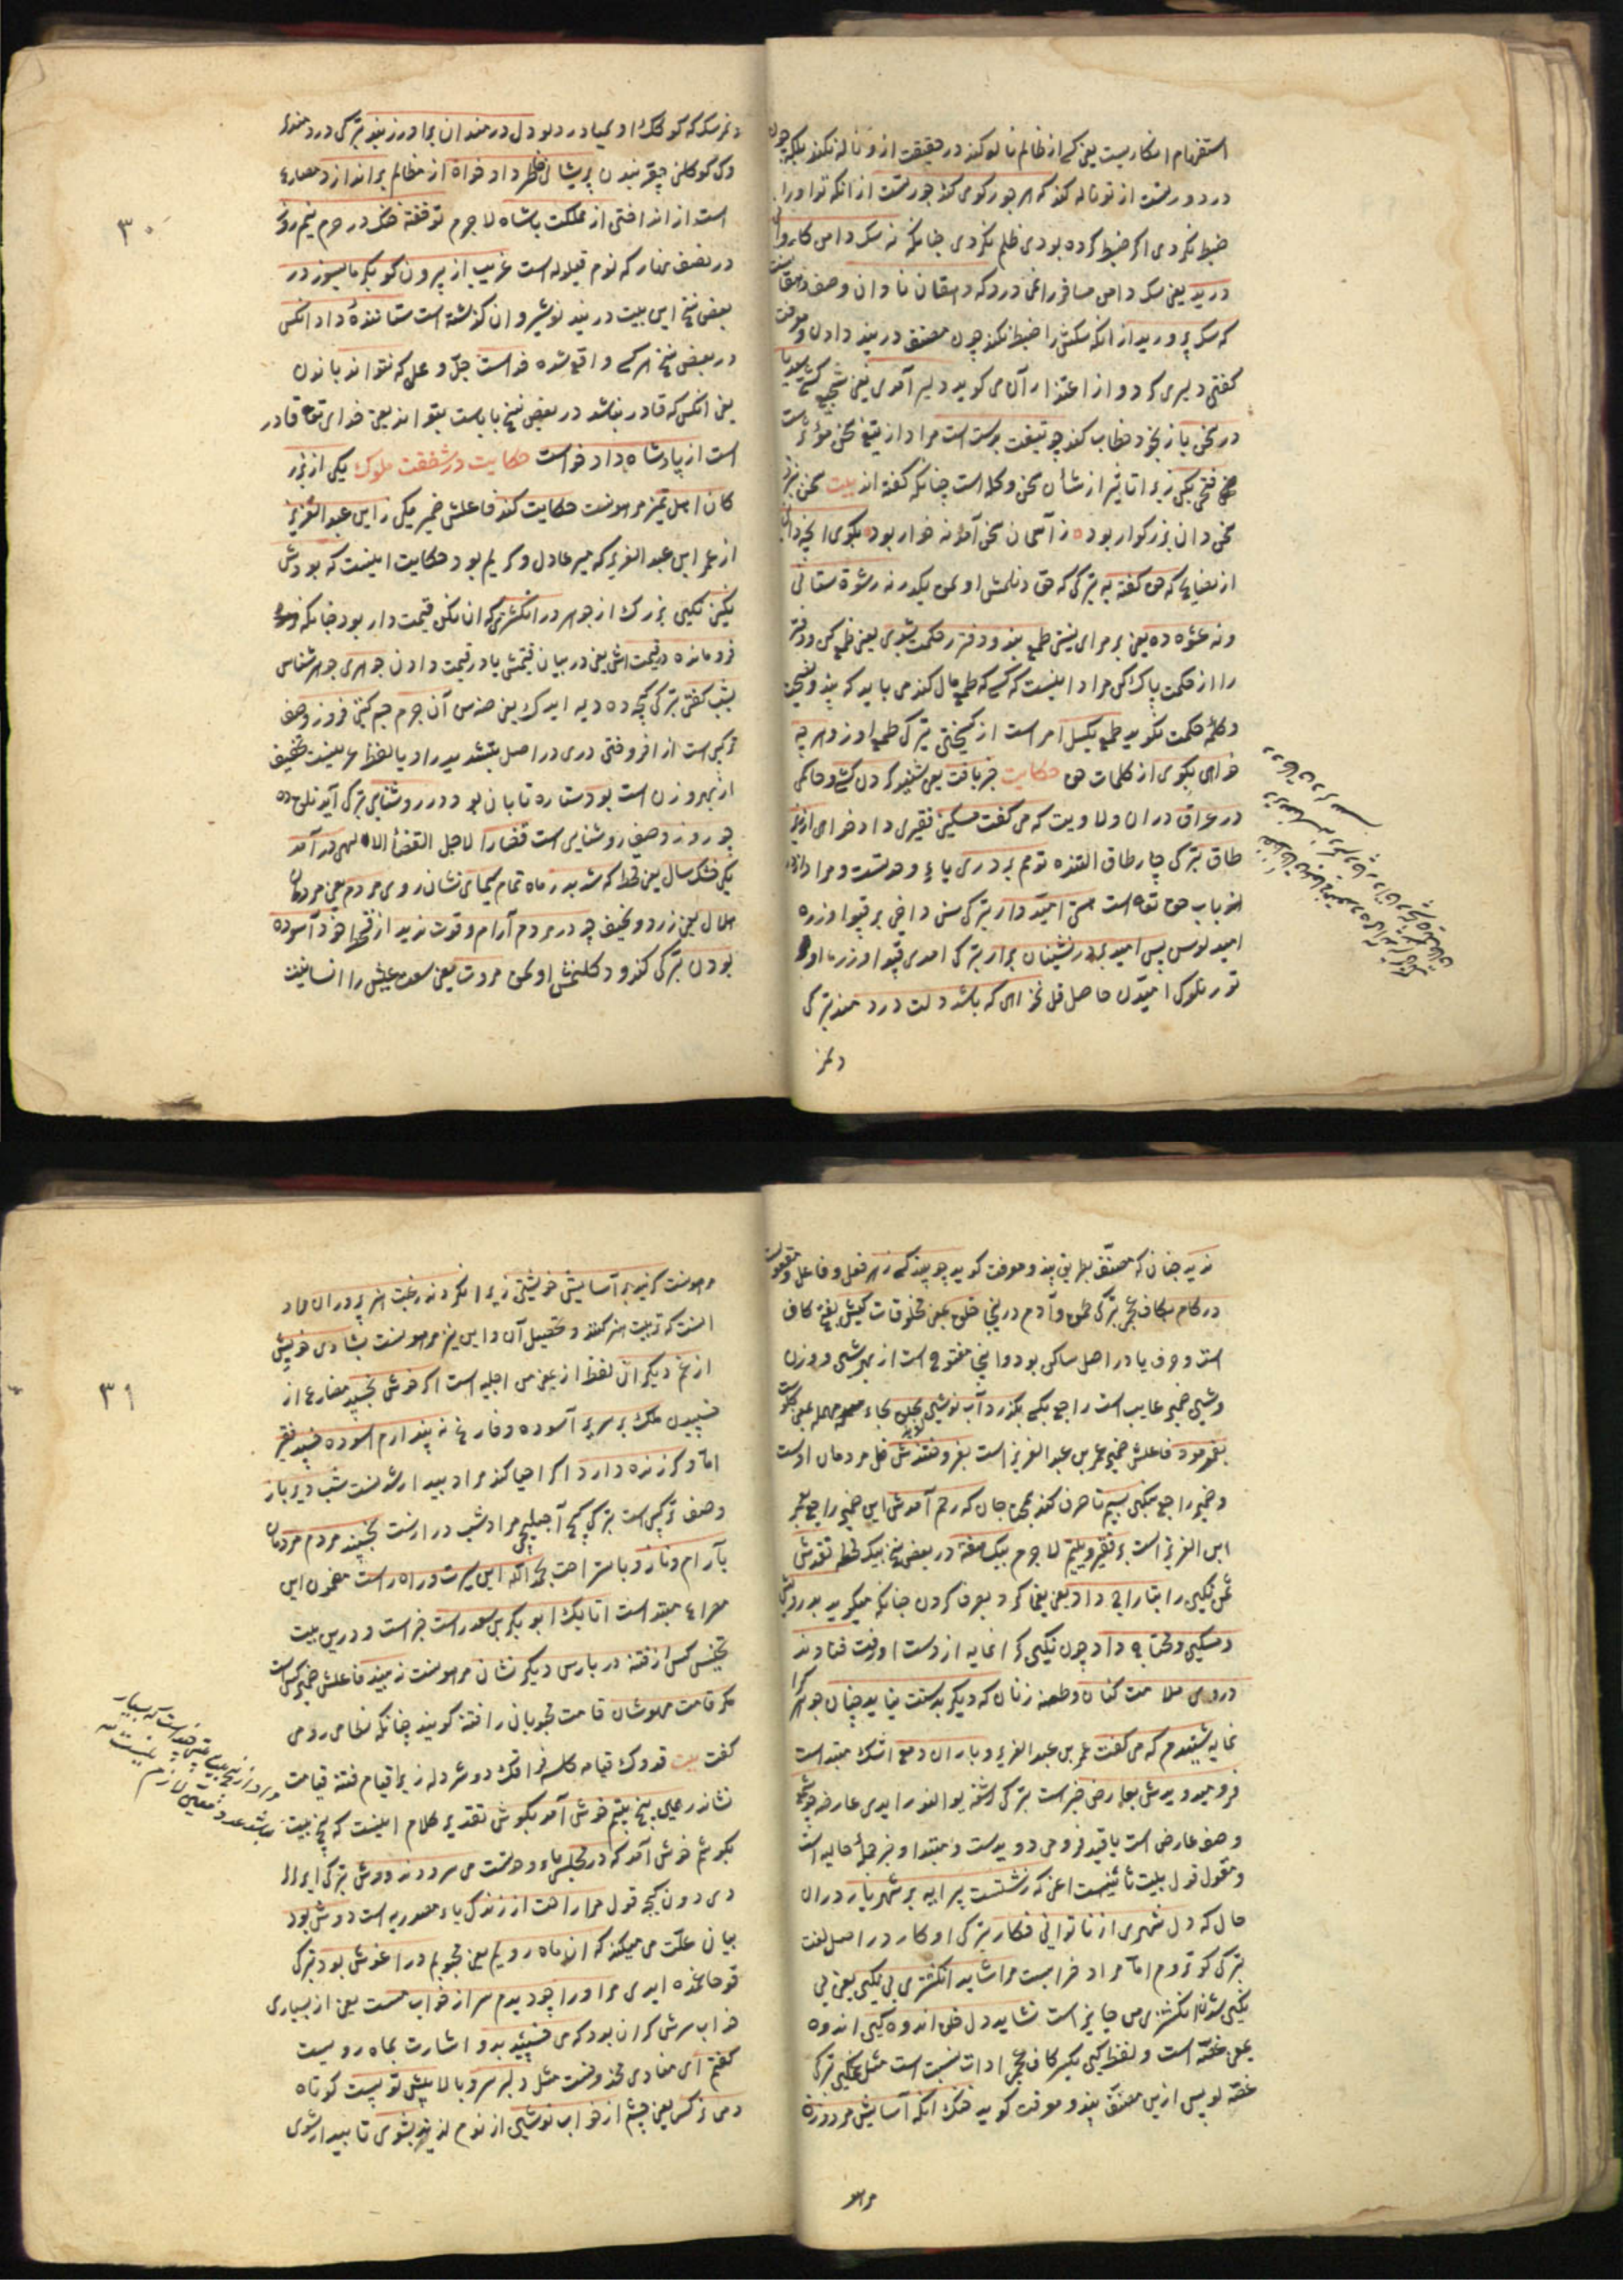 استفهام انکاریست یعنی کسی از ظالم نالد کند در حقیقت از و ناله نکند بلکه چون
درد و رشت از تو ناله کند که هر جور کوی کند جور تست از انکه تو او را
ضبط نکردی اکر ضبط کرده بودی ظلم نکردی چنانکه نه سک دامن کاروانی
درید یعنی سک دامن مسافر را نمی درد که دهقان نادان وصف دهقانست
که سک پرورید از انکه سکش را ضبط نکند چون مصنف در پند دادن و موعظت
کفتی دلیری کرد و از اعتذار آن می کوید دلیر آمدی یعنی شجیع کشتی سعدیا
در سخن باز بخود خطاب کند چو تیغت بدست است مراد از تیغ سخن مؤثرست
فتحی بکن زیرا تاثیر از شأن سخن وکله است چنانکه کفته اند بیت سخن نزد
سخن دان بزرکوار بود ز آسمان سخن آمد نه خوار بود بکوی انچه دانی
از نصایح که حق کفته به ترکی که حق دنلمش اولمق یکدر نه رشوة ستانی
ونه عشوه ده یعنی بر مرای نیستی طمع بند و دفتر حکمت بشوی یعنی طمع کن و دفتر
را از حکمت پاک کن مراد اینست که کسی که طمع مال کند می باید که پند و نصیحت
وکلمه حکمت نکوید طمع بکسل امر است از کسیختی ترکی طمع اوز و هر چه
خواهی بکوی از کلمات حق حکایت خبر یافت یعنی شنید کردن کشی وحاکمی
در عراق دران ولاویت که می کفت مسکین فقیری داد خواهی از زیر
طاق ترکی چار طاق التنده تو هم بر دری یاء وحدتست و مراد از در
از باب حق تعالی است هستی امیدوار ترکی سن داخی بر قپو اوزره
امید لوسن پس امید بر در نشینان برار ترکی امدی قپو اوزرینه او
تورنلرک امیدن حاصل قل نخواهی که باشد دلت درد مند ترکی
دلمز
دنمرسک که کوکلک او لمیا دردلو دل درمندان برآور زبند ترکی دردمند
وک کوکلنی چقر بندن پریشانی خاطر داد خواة از مظالم براندازد مضارع
است از انداختی از مملکت پاشاه لاجرم تو خفته خنک در حرم نیم روز
در نصف نهار که نوم قیلوله است غریب از برون کو بکرما بسوز در
بعضی نسخ این بیت در پند نوشیروان کذشته است ستاننده داد انکس
در بعضی نسخ هر کسی واقع شده خداست جل وعلا که نتواند یا نون
یعنی انکس که قادر نباشد در بعضی نسخ بایاست بتواند یعنی خدای تعالی قادر
است از پادشاه داد خواست حکایت در شفقت ملوک یکی از بزر
کان اهل تمیز مرهونست حکایت کند فاعلش ضمیر یکی ز ابن عبد العزیز
از عمر ابن عبد العزیز که میر عادل و کریم بود حکایت اینست که بودش
نکین نکین بزرک از جوهر در انکشتری که ان نکین قیمت دار بود چنانکه
فرو مانده در قیمت اش یعنی در بیان قیمتش یا در قیمت دادن جوهری جوهر شناس
بشب کفتی ترکی کیجه ده دیه ایدک یعنی جنس آن جرم جیم کیتی فروز وصف
ترکبی است از افروختی دری در اصل بتشدید را و یا لفظ عربیست تخفیف
از بهر وزن است بود ستاره تابان بود در روشنایی ترکی آیدنلق ده
چو روز و صف روشنایی است قضارا لاجل القضاء الالهی در آمد
یکی خشک سال یعنی قحط که شد بدر ماه تمام سیمای نشان روی مردم یعنی مردمان
هلال یعنی زرد و نحیف چو در مردم آرام و قوت ندید از قحط خود آسوده
بودن ترکی کندو دکلنمش اولمق مروت یعنی سعت عیش را انسانیت
۳۰
ندید چنان که مصنف بطریق پند و موعظت کوید چو بیند کسی زهر فعل و فاعل و مفعولست
در کام بکاف عجم ترکی طمق و آدم در نیجا خلق یعنی مخلوقات کیش بفتح کاف
است و حرف یا در اصل ساکن بود و اینجا مفتوح است از بهر وزن
وشین ضمیر غایب است راجع بکسی بکذرد آب نوشین بحلق بحاء مهمله یعنی کلوست
بفرمود فاعلش ضمیر عمر بن عبد العزیز است بفروختندش قل مردمان اوست
وضمیر راجع بنکین بسیم تا صرف کند بمحتاجان که رحم آمدش این ضمیر راجع بعمر
ابن العزیز است بر فقیر و یتیم لاجرم بیک هفته در بعضی نسخ بیک لحظه نقدش
ثمن نکین را بتاراج داد یعنی یغما کرد و بصرف کردن چنانکه میکوید بدرویش
و مسکین و محتاج داد چون نکین کرانمایه از دست او رفت فتادند
در وی ملامت کنان و طعنه زنان که دیکر بدست نیاید چنان جوهر کرا
نمایه شنیدم که می کفت عمر بن عبد العزیز و باران دمع اشک مبتداست
فرو میدویدش بعارض خبر است ترکی اشغه یوالنور ایدی عارضه چو شمع
وصف عارض است یا قید فرو می دویدست و مبتدا و خبر جملۀ حالیه است
و مقول قول بیت ثانیست اعنی که زشتست پیرایه بر شهریار دران
حال که دل شهری از ناتوانی فکار ترکی او کار در اصل لغت
ترکی کو تروم اما مراد خرابست مرا شاید انکشتری بی نکین یعنی بی
نکین شدن انکشتری من جایز است نشاید دل خلق اندوه کین اندوه
یعنی غصه است و لفظ کین بکسر کاف عجم ادات نسبت است مثل غمکین ترکی
غصه لو پس ازین مصنف پند و موعظت کوید خنک انکه آسایش مرد و زن
مرهو
مرهونست کزیند بر آسایش خویشتن زیرا نکردند رغبت هنر پروران مراد
انست که تربیت هنر کنند و تحصیل آن و این نیز مرهونست بشادی خویش
از غم دیکران لفظ از یعنی من اجلیه است اکر خوش بخسپد مضارع از
خسپیدن ملک بر سریر آسوده و فارغ نه پندارم اسوده خسپد فقیر
اما و کر زنده دارد اکر احیا کند مراد بیدار شدنست شب دیر باز
وصف ترکبی است ترکی کیچ آجیلیجی مراد شب درازست بخسپند مردم مردمان
بآرام و ناز و باستراحت بحمد الله این سیرت و راه راست مضمون این
مصراع مبتداست اتابک ابو بکر بن سعد راست خبر است و درین بیت
تجنیس کس از فتنه در پارس دیکر نشان مرهونست نه بیند فاعلش ضمیر کس است
مکر قامت مهوشان قامت محبوبان را فتنه کویند چنانکه نظامی رومی
کفت بیت قدوک قیامه کلسه فراقک دوشر دله زیرا قیام فتنه قیامت
نشاندر عملی پنج بیتم خوش آمد بکوش تقدیر کلام اینست که پنج بیت
بکوشم خوش آمد که در مجلسی یاء وحدتست می سرودند دوش ترکی ایرلر
دی دون کیجه قول مرا راحت از زندکی یاء مصدریه است دوش بود
بیان علت می میکند که ان ماه رویم یعنی محبوبم در اغوش بود ترکی
قوجاغمده ایدی مر او را چو دیدم سر از خواب مست یعنی از بسیاری
خواب سرش کران بود که می خسپید بدو اشارت بماه رویست
کفتم ای منادی محذوفست مثل دلبر سرو بالا پیش تو پست کوتاه
دمی نرکس یعنی چشم از خواب نوشین از نوم لذیذ بشوی تا بیدار شوی
۳۱